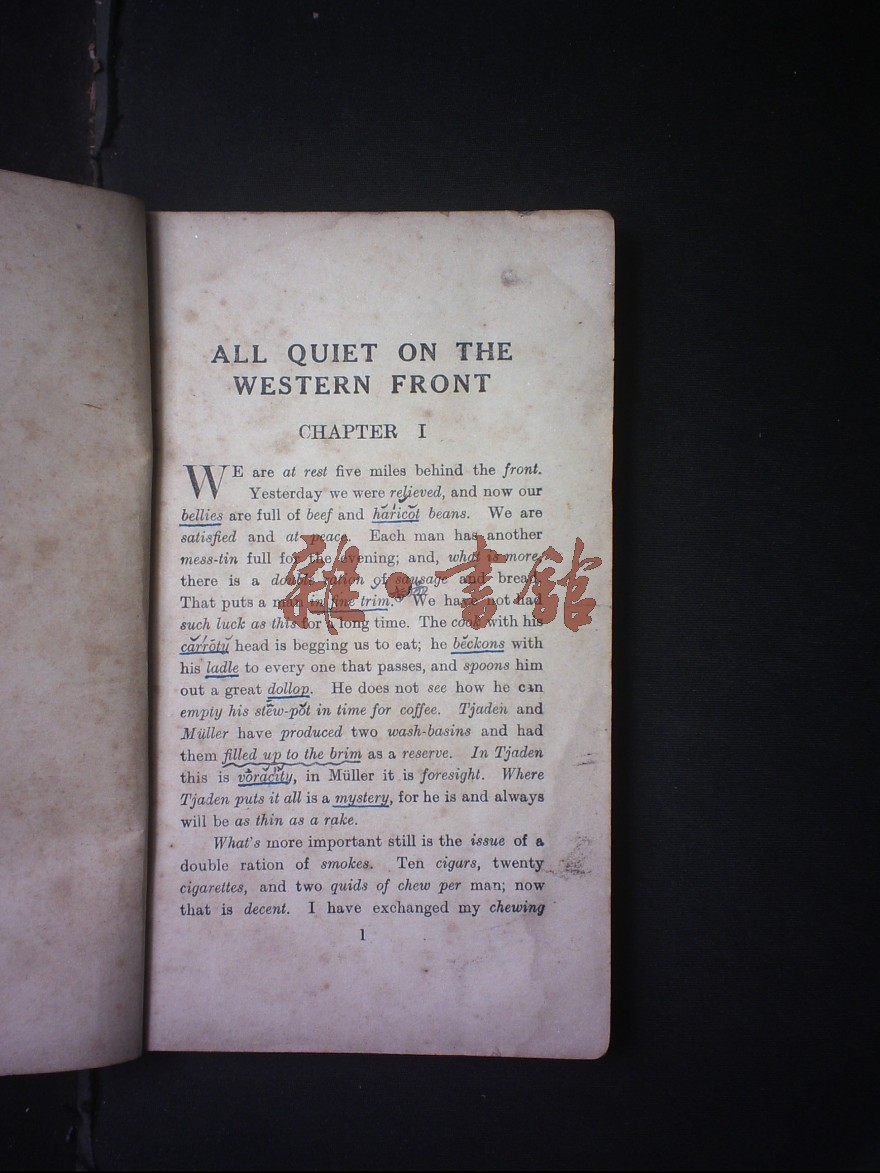 ALL QUIET ON THE
WESTERN FRONT
CHAPTER I
WE are at rest five miles behind the front.
Yesterday we were relieved, and now our
bellies are full of beef and haricot beans. We are
satisfied and at peace. Each man has another
mess-tin full for the evening; and, what is more,
there is a double ration of sausage and bread.
That puts a man in fine trim. We have not had
such luck as this for a long time. The cook with his
carroty head is begging us to eat; he beckons with
his ladle to every one that passes, and spoons him
out a great dollop. He does not see how he can
empty his stew-pot in time for coffee. Tjaden and
Müller have produced two wash-basins and had
them filled up to the brim as a reserve. In Tjaden
this is voracity, in Müller it is foresight. Where
Tjaden puts it all is a mystery, for he is and always
will be as thin as a rake.
What's more important still is the issue of a
double ration of smokes. Ten cigars, twenty
cigarettes, and two quids of chew per man; now
that is decent. I have exchanged my chewing
1
雜·書館